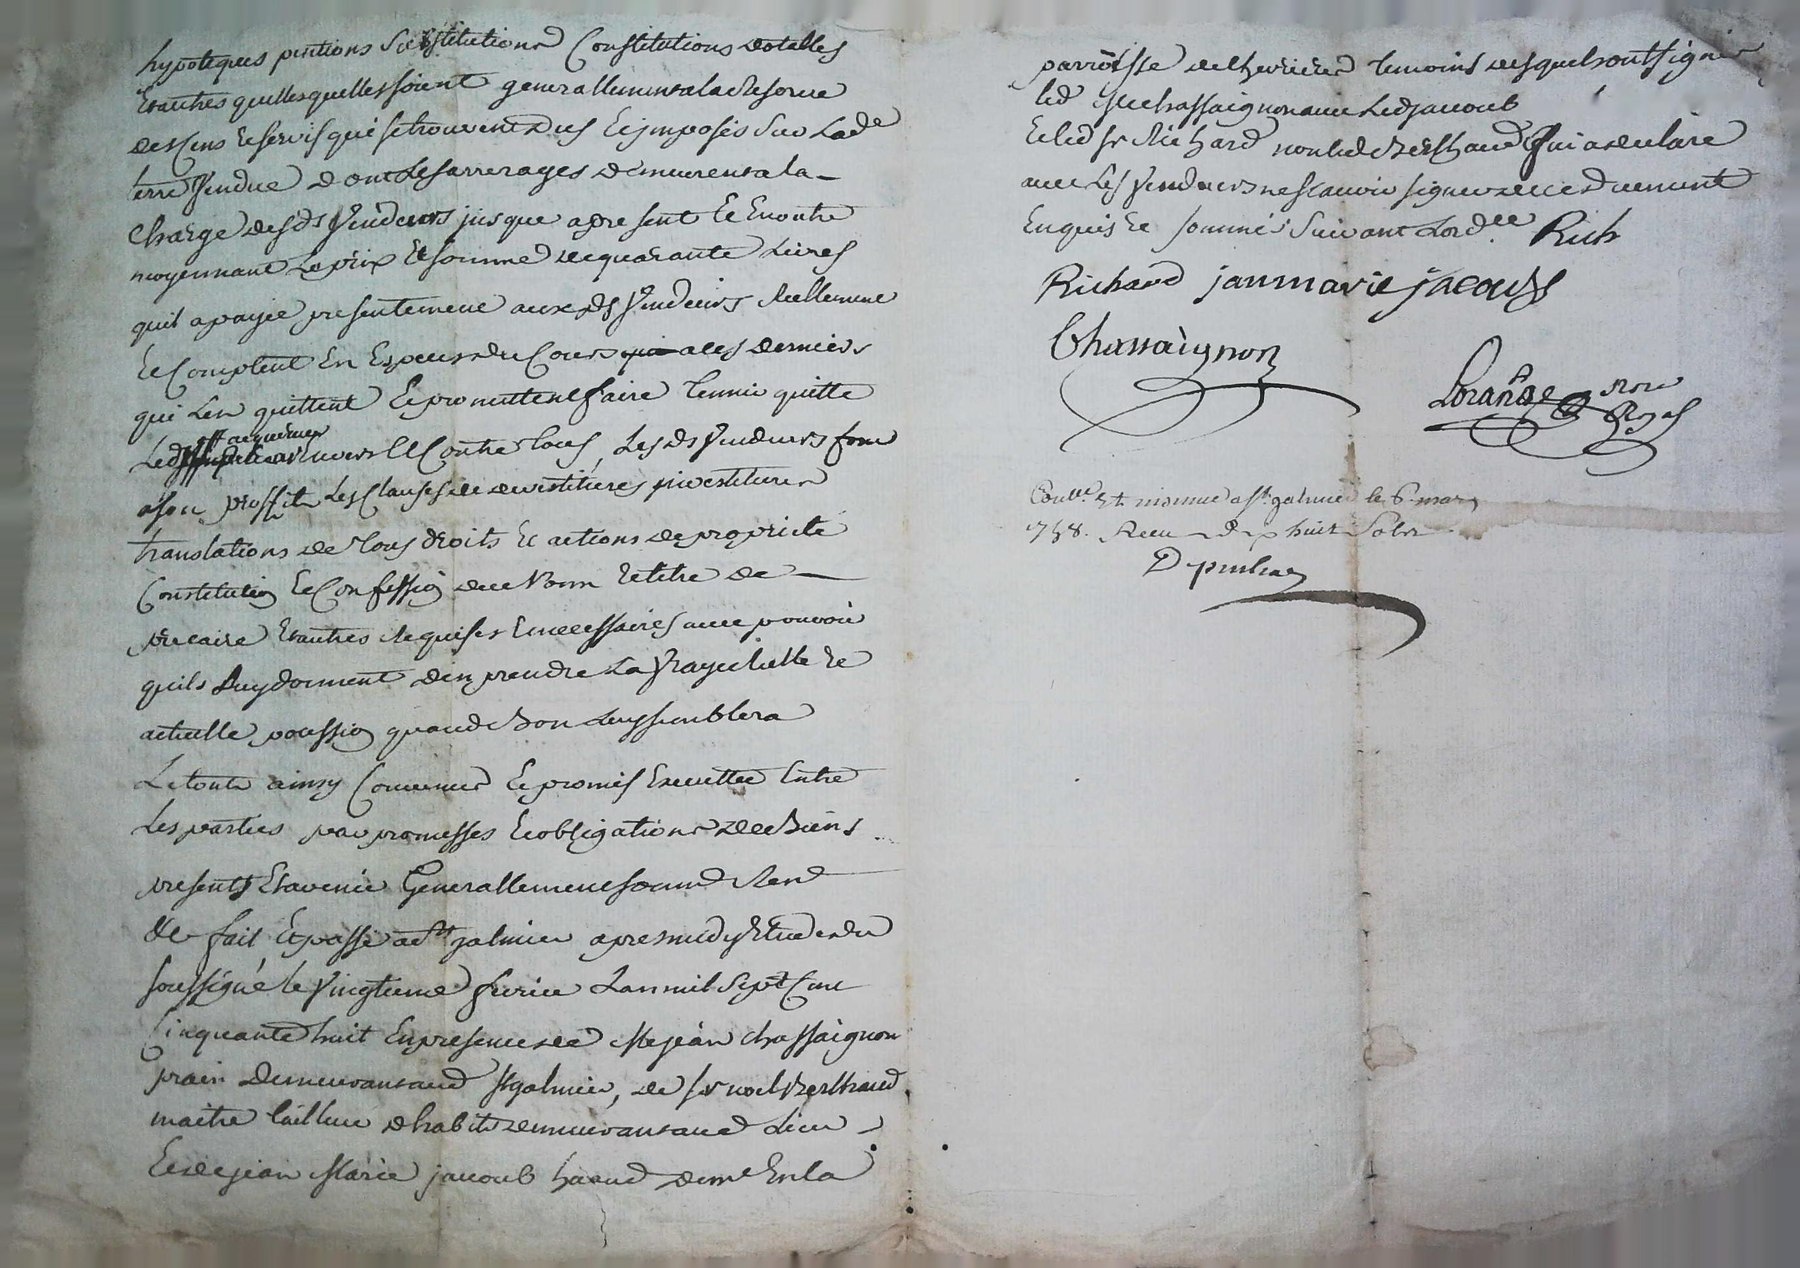 hypoteques pentions Substitutions Constitutions dotalles
Et autres quelles quelles soient generallement a la Reserve
des Cens Et servis qui se trouvent dus Et imposés Sur La de
terre Vendue dont Les arrerages demeurent a la
Charge desds Vendeurs jusque apresent Et En outre
moyennant Le prix Et somme de quarante Livres
quil a payée presentement auxds Vendeurs Reellement
Et Comptent En Especes du Cours a ces derniers
qui Len quittent Et promettent faire tenir quitte
Led acquereur Envers Et Contre tous, Lesds Vendeurs font
a son proffit Les Clauses de devestitures investitures
translations de tous droits Et actions de propriete
Constitution Et Confession de Nom Et titre de
precaire Et autres Requises Et necessaires avec pouvoir
quils Luy donnent den prendre La Vraye Reelle Et
actuelle possession quand Bon Luy semblera
Le tout ainsy Convenu Et promis Executter Entre
Les parties par promesses Et obligations de Biens
presents Et avenir Generallement
fait Et passé a St galmier apres midy Etude du
soussigné le Vingtieme fevrier Lan mil Sept Cent
Cinquante huit En presence de Me jean Chassaignon
demeurant aud St galmier, de sr noel Berthaud
maitre tailleur dhabits demeurant aud Lieu
Et de jean Marie jacoub demt En la
parroisse de temoins desquels ont signé
led Me chassaignon avec Led jacoub
Et led sr Richard non led Berthaud qui a declaré
avec Les Vendeurs ne scavoir signer de ce duement
Enquis Et sommé Suivant Lordce Rich
Richard janmarie jacoub
Chassaignon
Not Royal
Conllé Et a St galmier le 6 mars
1758. Recu huit Sols